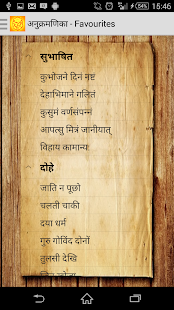 15:46
अनुक्रमणिका - Favourites
सुभाषित
कुभोजने दिनं नष्टं
देहाभिमाने गलितं
कुसुमं वर्णसंपन्नं
आपत्सु मित्रं जानीयात्
विहाय कामान्यः
दोहे
जाति न पूछो
चलती चाकी
दया धर्म
गुरु गोविंद दोनों
तुलसी देखि